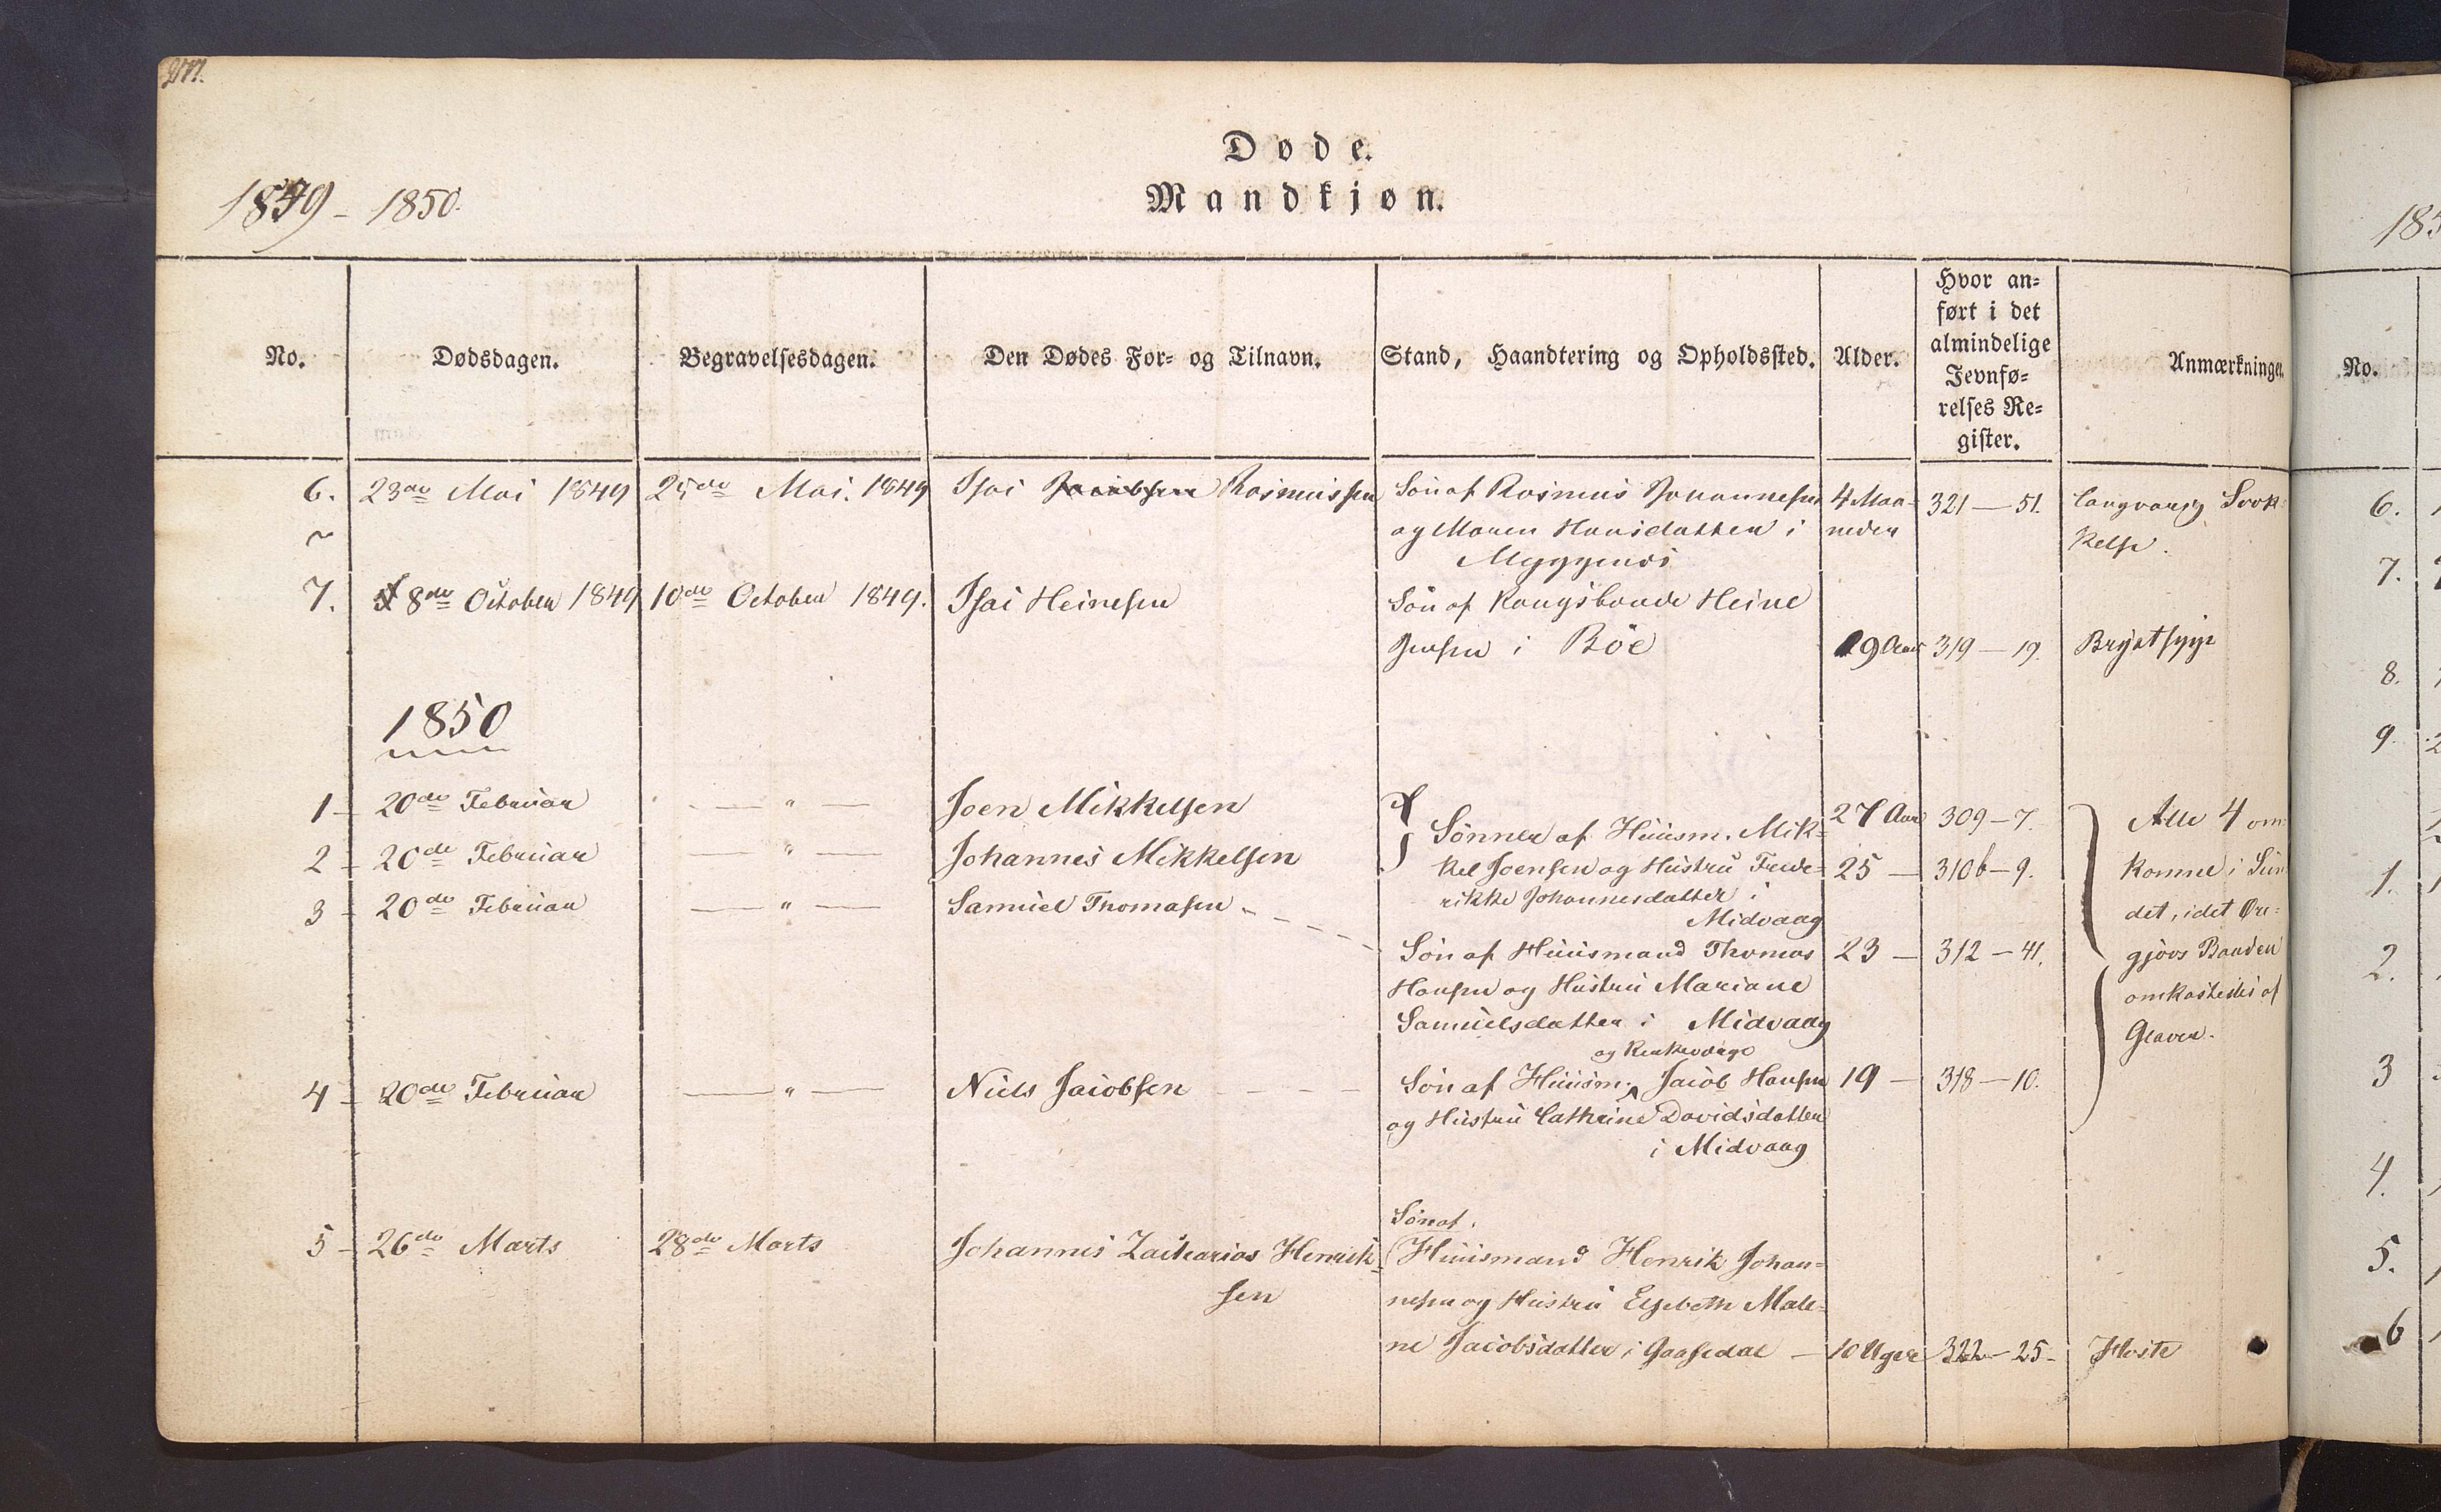 Døde.
Mandkjøn.
1849 - 1850.
No.
Dødsdagen.
Begravelsesdagen.
Den Dødes For- og Tilnavn.
Stand, Haandtering og Opholdssted.
Alder.
Hvor an-
ført i det
almindelige
Jevnfø-
relses Re-
gister.
Anmærkninger.
6. 23de Mai 1849 25de Mai. 1849 Isai Jacobsen Rasmussen Søn af Rasmus Johannesen 4 Maa- 321 - 51. langvarig Svæk-
og Maren Hansdatter i neder kelse.
Myggenæs
7. 8de October 1849 10de October 1849. Isai Heinesen Søn af Kongsbonde Heine
Jensen i Böe 19 Aar 319 - 19. Brystsyge
1850
1 - 20de Februar — " — Joen Mikkelsen 27 Aar 309 - 7. Alle 4 om-
Sönner af Huusm. Mik-
2 - 20de Februar — " — Johannes Mikkelsen kel Joensen og Hustru Frede- 25 - 310b - 9. komne i Sun-
3 - 20de Februar — " — Samuel Thomasen rikke Johannesdatter i det, idet Øre-
Midvaag
Søn af Huusmand Thomas 23 - 312 - 41. gjovs Baaden
Hansen og Hustru Mariane omkastedes af
Samuelsdatter i Midvaag Glaver.
og
4 - 20de Februar — " — Niels Jacobsen Søn af Huusm. Jacob Hansen 19 - 318 - 10.
og Hustru Cathrine Davidsdatter
i Midvaag
Søn af
5 - 26de Marts 28de Marts Johannes Zacharias Henrik- Huusmand Henrik Johan-
sen nesen og Hustru Elsebeth Male-
ne Jacobsdatter i Gaasedal - 10 Uger 322 - 25 - Hoste
185
No.
6.
7.
8.
9.
1.
2.
3
4.
5.
6